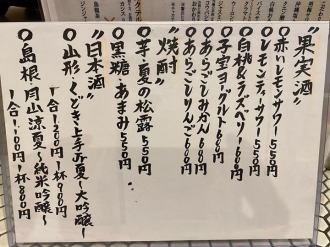 "果実酒"
○赤いレモンサワー 550円
○レモンティーサワー 550円
○白桃&ラズベリー 660円
○子宝ヨーグルト 600円
○あらごしみかん 600円
○あらごしりんご 600円
"焼酎"
○芋・夏の松露 550円
○黒糖・あまみ 550円
"日本酒"
○山形・くどき上手近夏〜大吟醸〜
一合1,200円 一杯900円
○島根・月山涼夏〜純米吟醸〜
一合1,100円 一杯800円